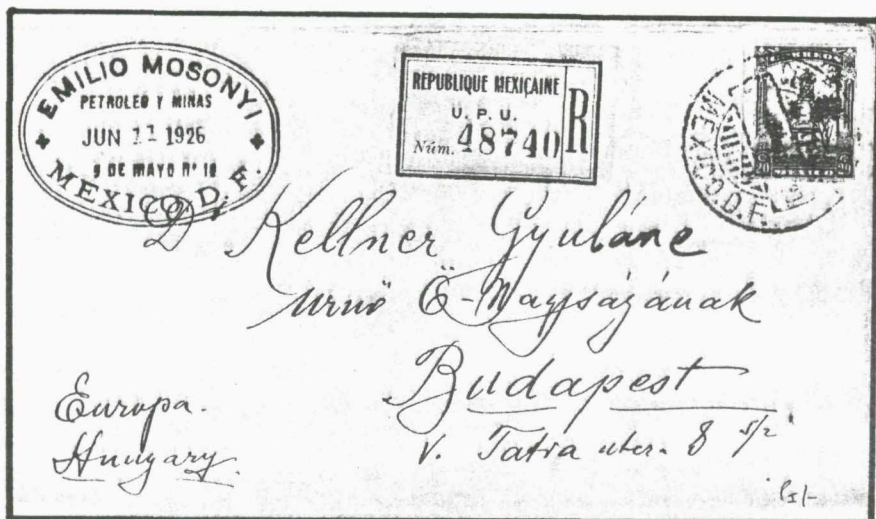 EMILIO MOSONYI
PETROLEO Y MINAS
JUN 11 1926
5 DE MAYO Nº 18
MEXICO, D. F.
REPUBLIQUE MEXICAINE
U. P. U.
Núm. 48740
R
MEXICO D.F.
D Kellner Gyuláne
urnő Ő-Nagyságának
Budapest
V. Tatra utca. 8
Europa.
Hungary.